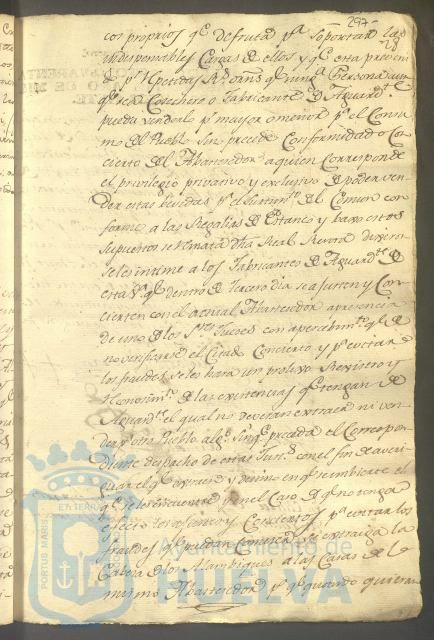 297
28
cos proprios qe. disfruta pa. soportar las
indispensables Cargas de ellos y qe. esta preveni
do pr. repetidas Rs. ordns. qe. ningna. Persona aun
qe. sea Cosechero o Fabricante de Aguardte.
pueda venderlo pr. mayor o menor pa. el Consu
mo del Pueblo sin precede Conformidad o Con
cierto del Abastecedor a quien corresponde
el privilegio privativo y exclusivo de poder ven
der estas bevidas pa. el surtimto. del Comun con
forme a las Regalias de Estanco y baxo estos
supuestos se remata dha. Real Renta
se les intime a los Fabricantes de Aguardte. de
esta Va. qe. dentro de Tercero dia se ajusten y Con
cierten con el actual Abastecedor a presencia
de uno de los Sres. Jueces con apercibimto. qe. de
no verificarse el Citado Concierto y pa. evitar
los fraudes se les hara un prolixo Registro y
Reconosimto. de las existencias qe. tengan de
Aguardte. el qual no deveran extraer ni ven
der pa. otro Pueblo algo. sin qe. preceda el Correspon
diente despacho de estas Justs. con el fin de averi
guar el qe. y destino en qe. se imbierte el
qe. se les encuentre y en el Caso de qe. no tenga
efecto los ajustes y Conciertos pa. evitar los
fraudes qe. puedan cometerse se extraiga la
Cabeza de los Alambiques a las Casas de el
mismo Abastecedor pa. qe. quando quieran
PORTUS MARIS
EN TERRAE
Ayuntamiento de
HUELVA